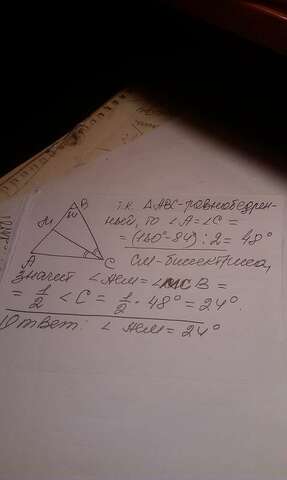 B
84
M
A
C
т.к. ΔABC-равнобедрен-
ный, то ∠A=∠C =
= (180°-84) : 2 = 48°
CM-биссектриса,
значит ∠ACM=∠MCB =
= 1/2 ∠C = 1/2 · 48° = 24°.
Ответ: ∠ACM = 24°